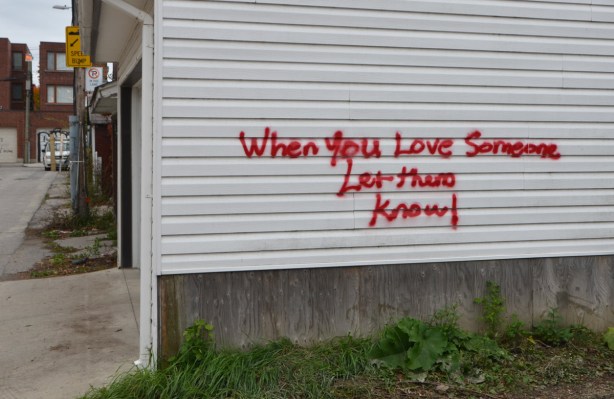 SPEED
BUMP
P
When You Love Someone
Let them
Know!